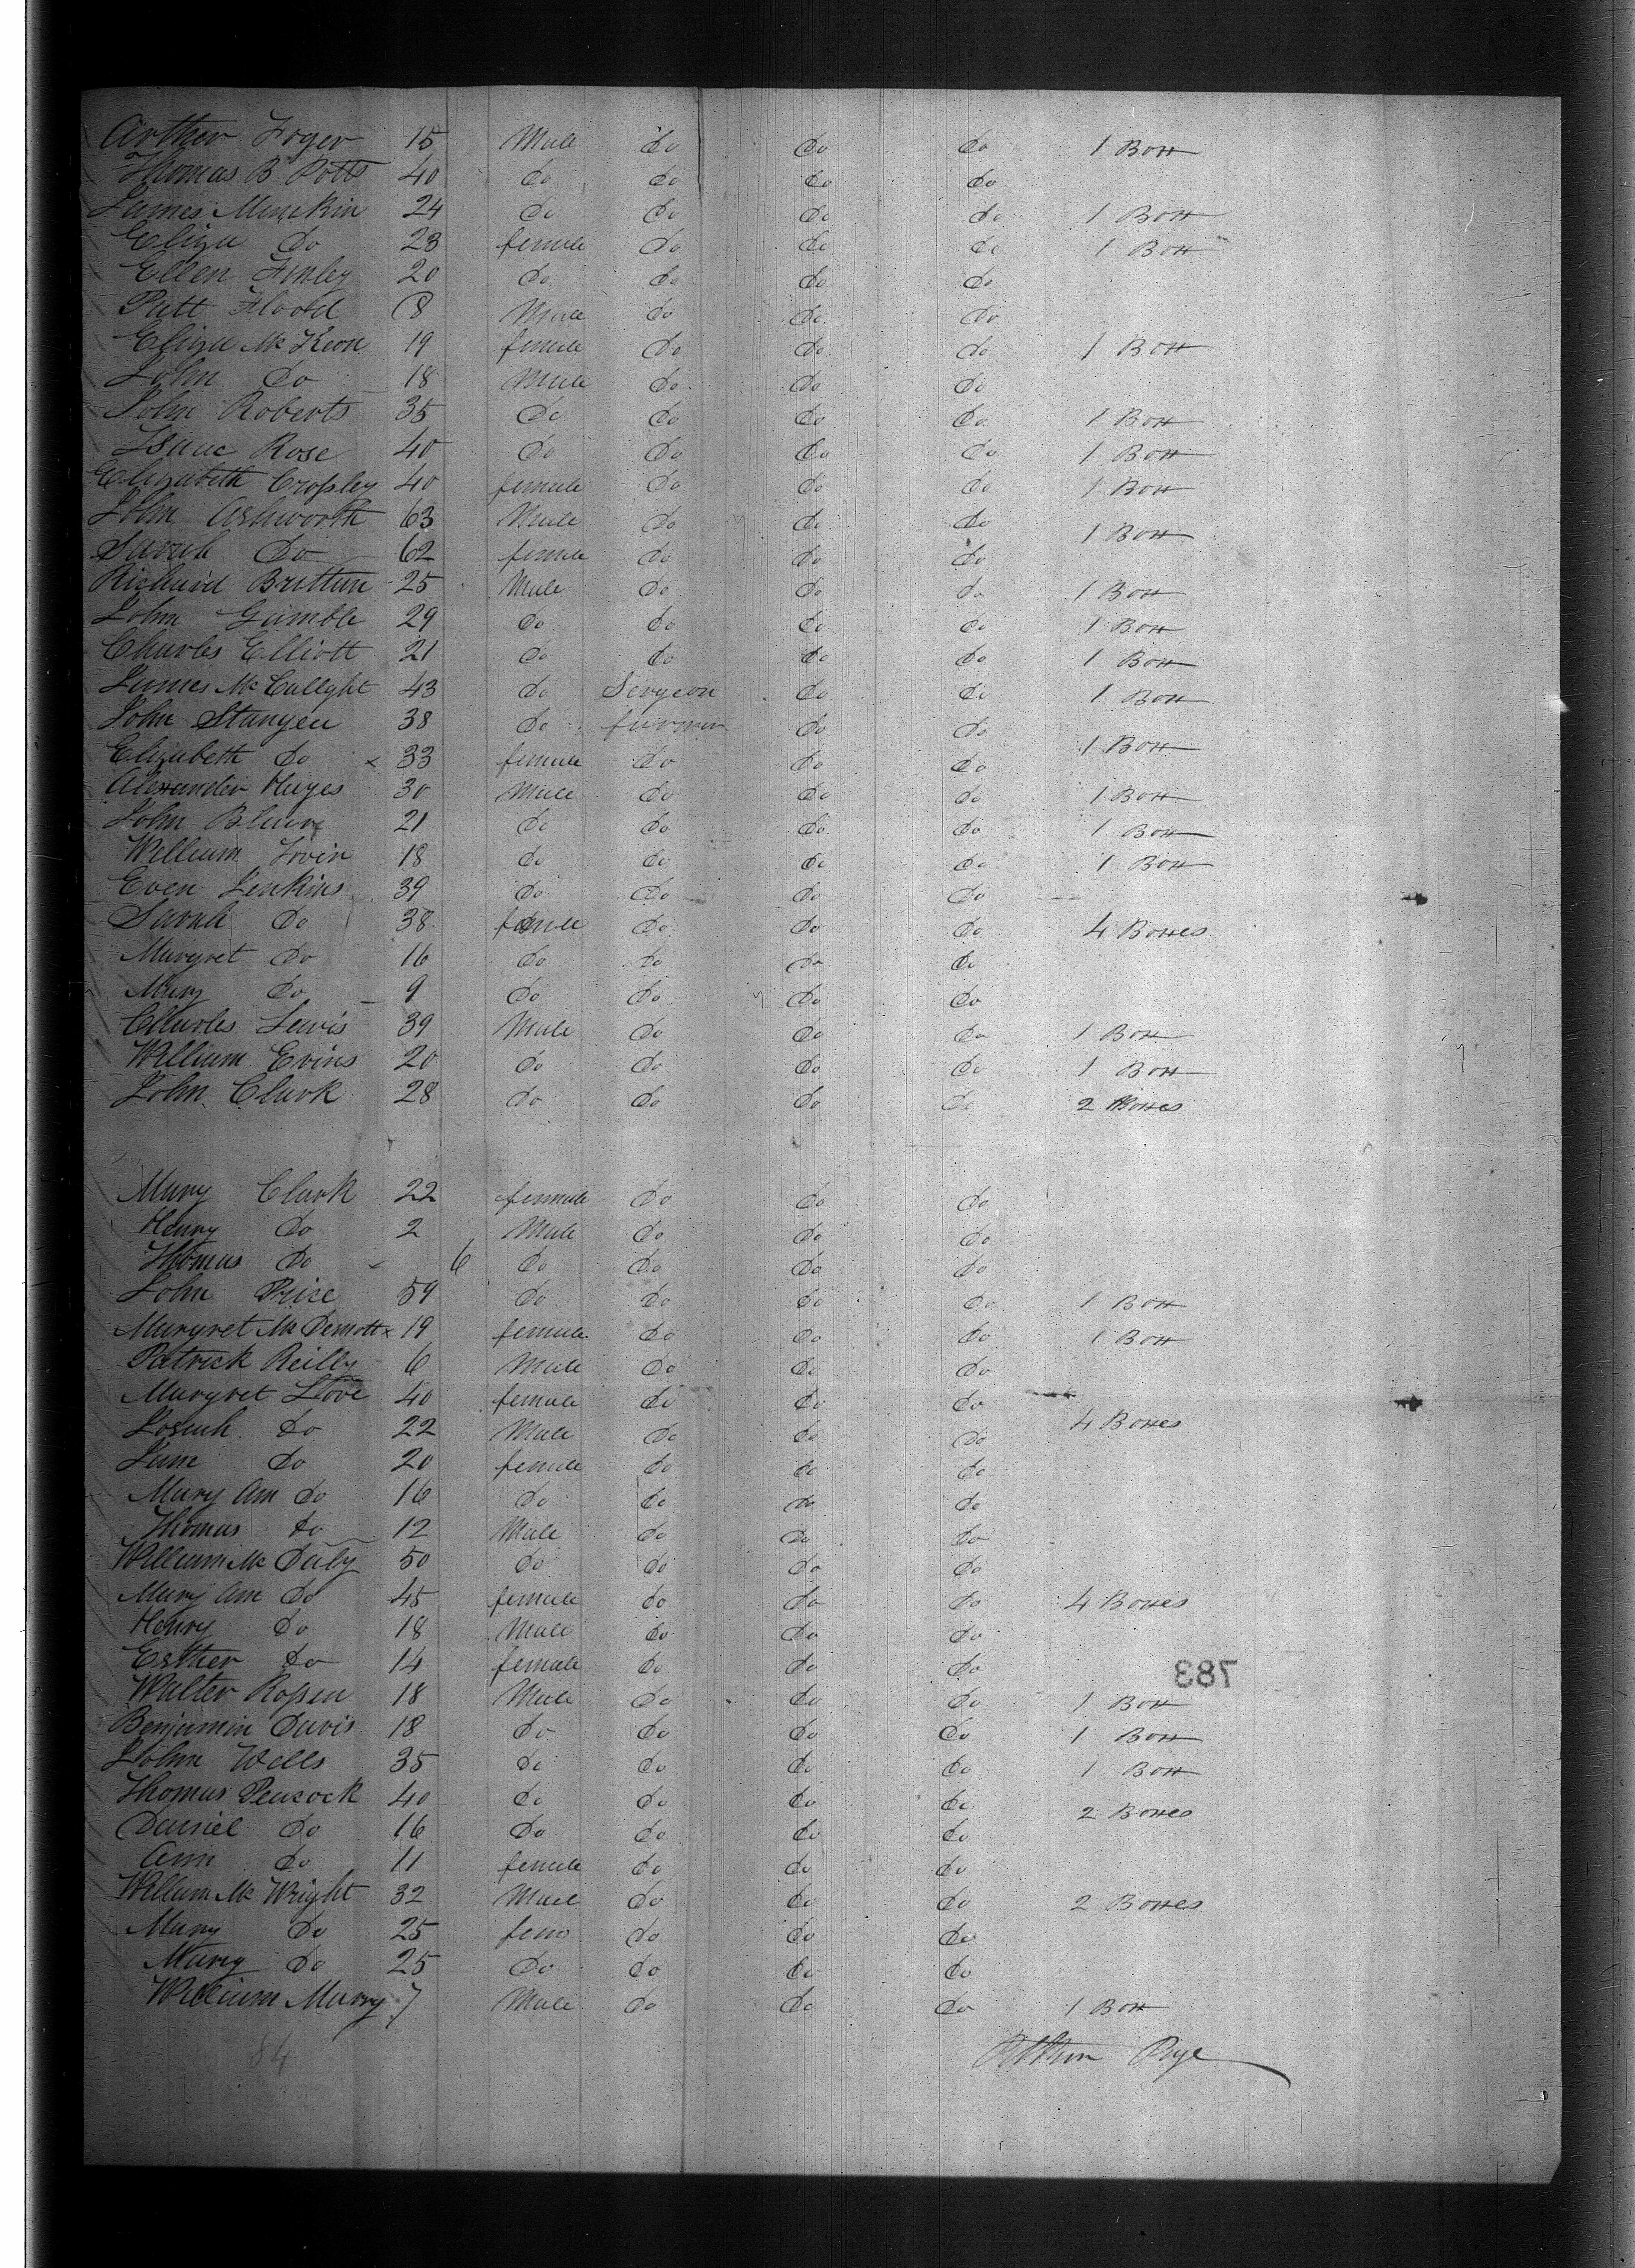 Arthur Foger 15 Male do do do 1 Box
Thomas B Potts 40 do do do do
James Minekin 24 do do do do 1 Box
Eliza do 23 female do do do 1 Box
Ellen Finley 20 do do do do
Patt Flood 8 Male do do do
Eliza Mc Keon 19 female do do do 1 Box
John do 18 Male do do do
John Roberts 35 do do do do 1 Box
Isaac Rose 40 do do do do 1 Box
Elizabeth Cropley 40 female do do do 1 Box
John Ashworth 63 Male do do do 1 Box
Sarah do 62 female do do do
Richard Brittan 25 Male do do do 1 Box
John Gamble 29 do do do do 1 Box
Charles Elliott 21 do do do do 1 Box
James Mc Cullyht 43 do Sergeon do do 1 Box
John Stanyeu 38 do farmer do do 1 Box
Elizabeth do x 33 female do do do
Alexander Hayes 30 Male do do do 1 Box
John 21 do do do do 1 Box
William Irvin 18 do do do do 1 Box
Even Jenkins 39 do do do do
Sarah do 38 female do do do 4 Boxes
Margret do 16 do do do do
Mary do 9 do do do do
Charles Lewis 39 Male do do do 1 Box
William Evins 20 do do do do 1 Box
John Clark 28 do do do do 2 Boxes
Mary Clark 22 female do do do
Henry do 2 Male do do do
Thomas do 6 do do do do
John Prise 59 do do do do 1 Box
Margret Mc Demott x 19 female do do do 1 Box
Patrick Reilly 6 Male do do do
Margret Love 40 female do do do 4 Boxes
Josiah do 22 Male do do do
Jane do 20 female do do do
Mary Ann do 16 do do do do
Thomas do 12 Male do do do
William Mc Daly 50 do do do do
Mary Ann do 45 female do do do 4 Boxes
Henry do 18 Male do do do
Esther do 14 female do do do
783
Walter Rosseu 18 Male do do do 1 Box
Benjamin Davis 18 do do do do 1 Box
John Wells 35 do do do do 1 Box
Thomas Peacock 40 do do do do 2 Boxes
Daniel do 16 do do do do
Ann do 11 female do do do
William Mc Wright 32 Male do do do 2 Boxes
Mary do 25 fem do do do
Mary do 25 do do do do
William Murry 7 Male do do do 1 Box
84